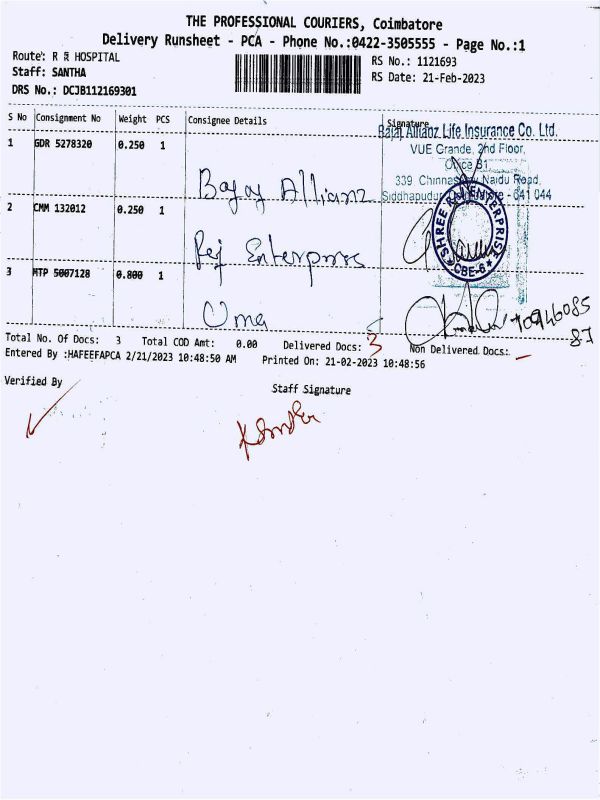 THE PROFESSIONAL COURIERS, Coimbatore
Delivery Runsheet - PCA - Phone No.:0422-3505555 - Page No.:1
Route: R R HOSPITAL
RS No.: 1121693
Staff: SANTHA
RS Date: 21-Feb-2023
DRS No.: DCJB112169301
S No Consignment No Weight PCS Consignee Details Signature
Bajaj Allianz Life Insurance Co. Ltd.
VUE Grande, 2nd Floor,
Office B1
339 Chinnaswamy Naidu Road,
641 044
1 GDR 5278320 0.250 1 Bajaj Allianz
2 CMM 132012 0.250 1 Rej Enterprises
SHREE RAJ ENTERPRISE
CBE-6
3 MTP 5007128 0.800 1 Uma
7094608587
Total No. Of Docs: 3 Total COD Amt: 0.00 Delivered Docs: 3 Non Delivered Docs: -
Entered By :HAFEEFAPCA 2/21/2023 10:48:50 AM Printed On: 21-02-2023 10:48:56
Verified By
Staff Signature